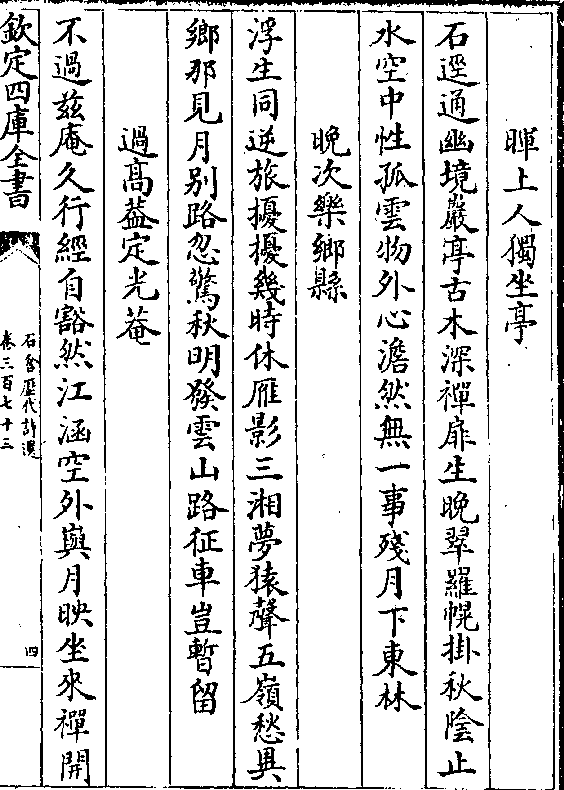 暉上人獨坐亭
石逕通幽境巖亭古木深禪扉生晚翠羅幌掛秋陰止
水空中性孤雲物外心澹然無一事殘月下東林
晚次樂鄉縣
浮生同逆旅擾擾幾時休雁影三湘夢猿聲五嶺愁異
鄉那見月別路忍驚秋明發雲山路征車豈暫留
過高葢定光菴
不過兹庵久行經自豁然江涵空外與月映坐來禪開
欽定四庫全書
石倉歷代詩選
卷三百七十三
四